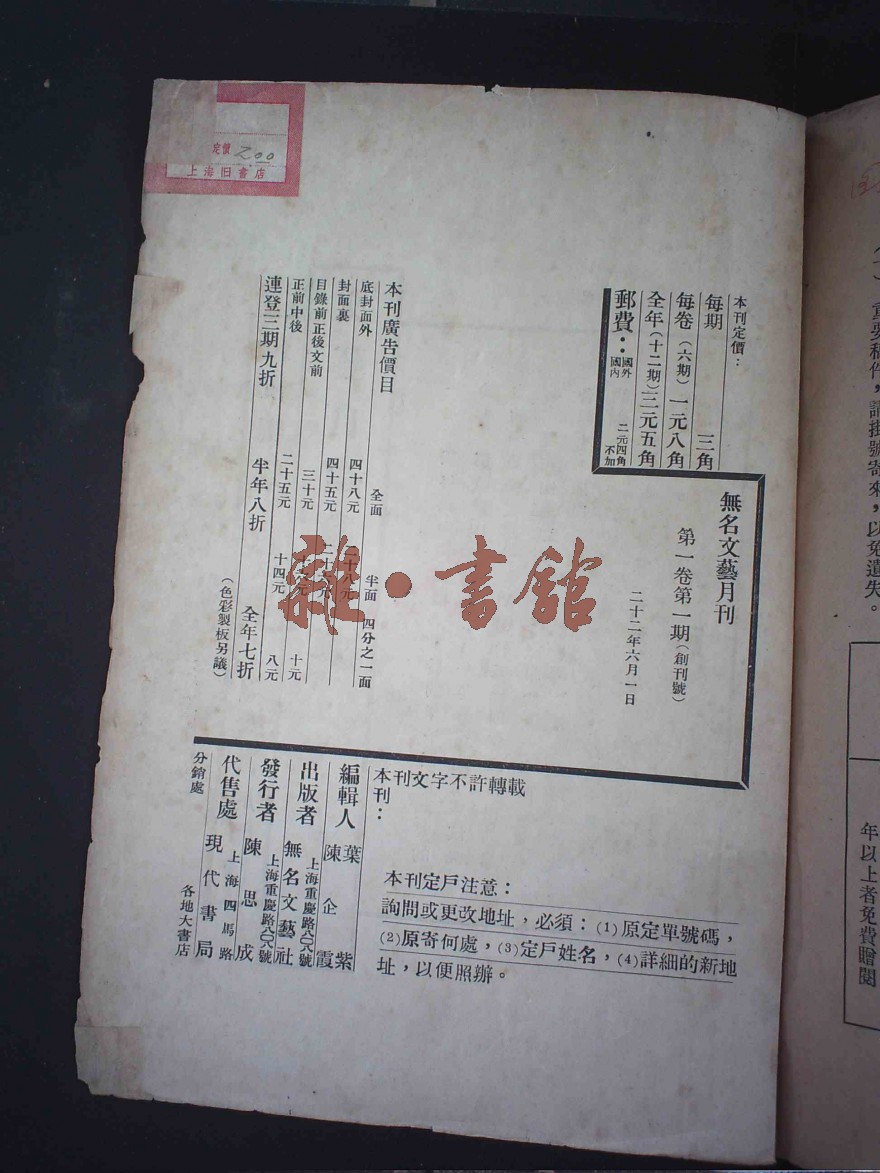 定價 2.00
上海旧書店
本刊定價：
每期 三角
每卷（六期）一元八角
全年（十二期）三元五角
郵費：國外 二元四角
國內 不加
無名文藝月刊
第一卷第一期（創刊號）
二十二年六月一日
本刊廣告價目
全面 半面 四分之一面
底封面外 四十八元 二十八元
封面裏 四十五元
目錄前正後文前 三十元 十元
正前中後 二十五元 十四元 八元
連登三期九折 半年八折 全年七折
（色彩製板另議）
雜·書館
本刊文字不許轉載
本刊：
編輯人 葉紫 陳企霞
出版者 上海重慶路八〇八號 無名文藝社
發行者 上海重慶路八〇八號 陳思成
代售處 上海四馬路 現代書局
分銷處 各地大書店
本刊定戶注意：
詢問或更改地址，必須：(1)原定單號碼，
(2)原寄何處，(3)定戶姓名，(4)詳細的新地
址，以便照辦。
重要稿件，請掛號寄來，以免遺失。
年以上者免費贈閱